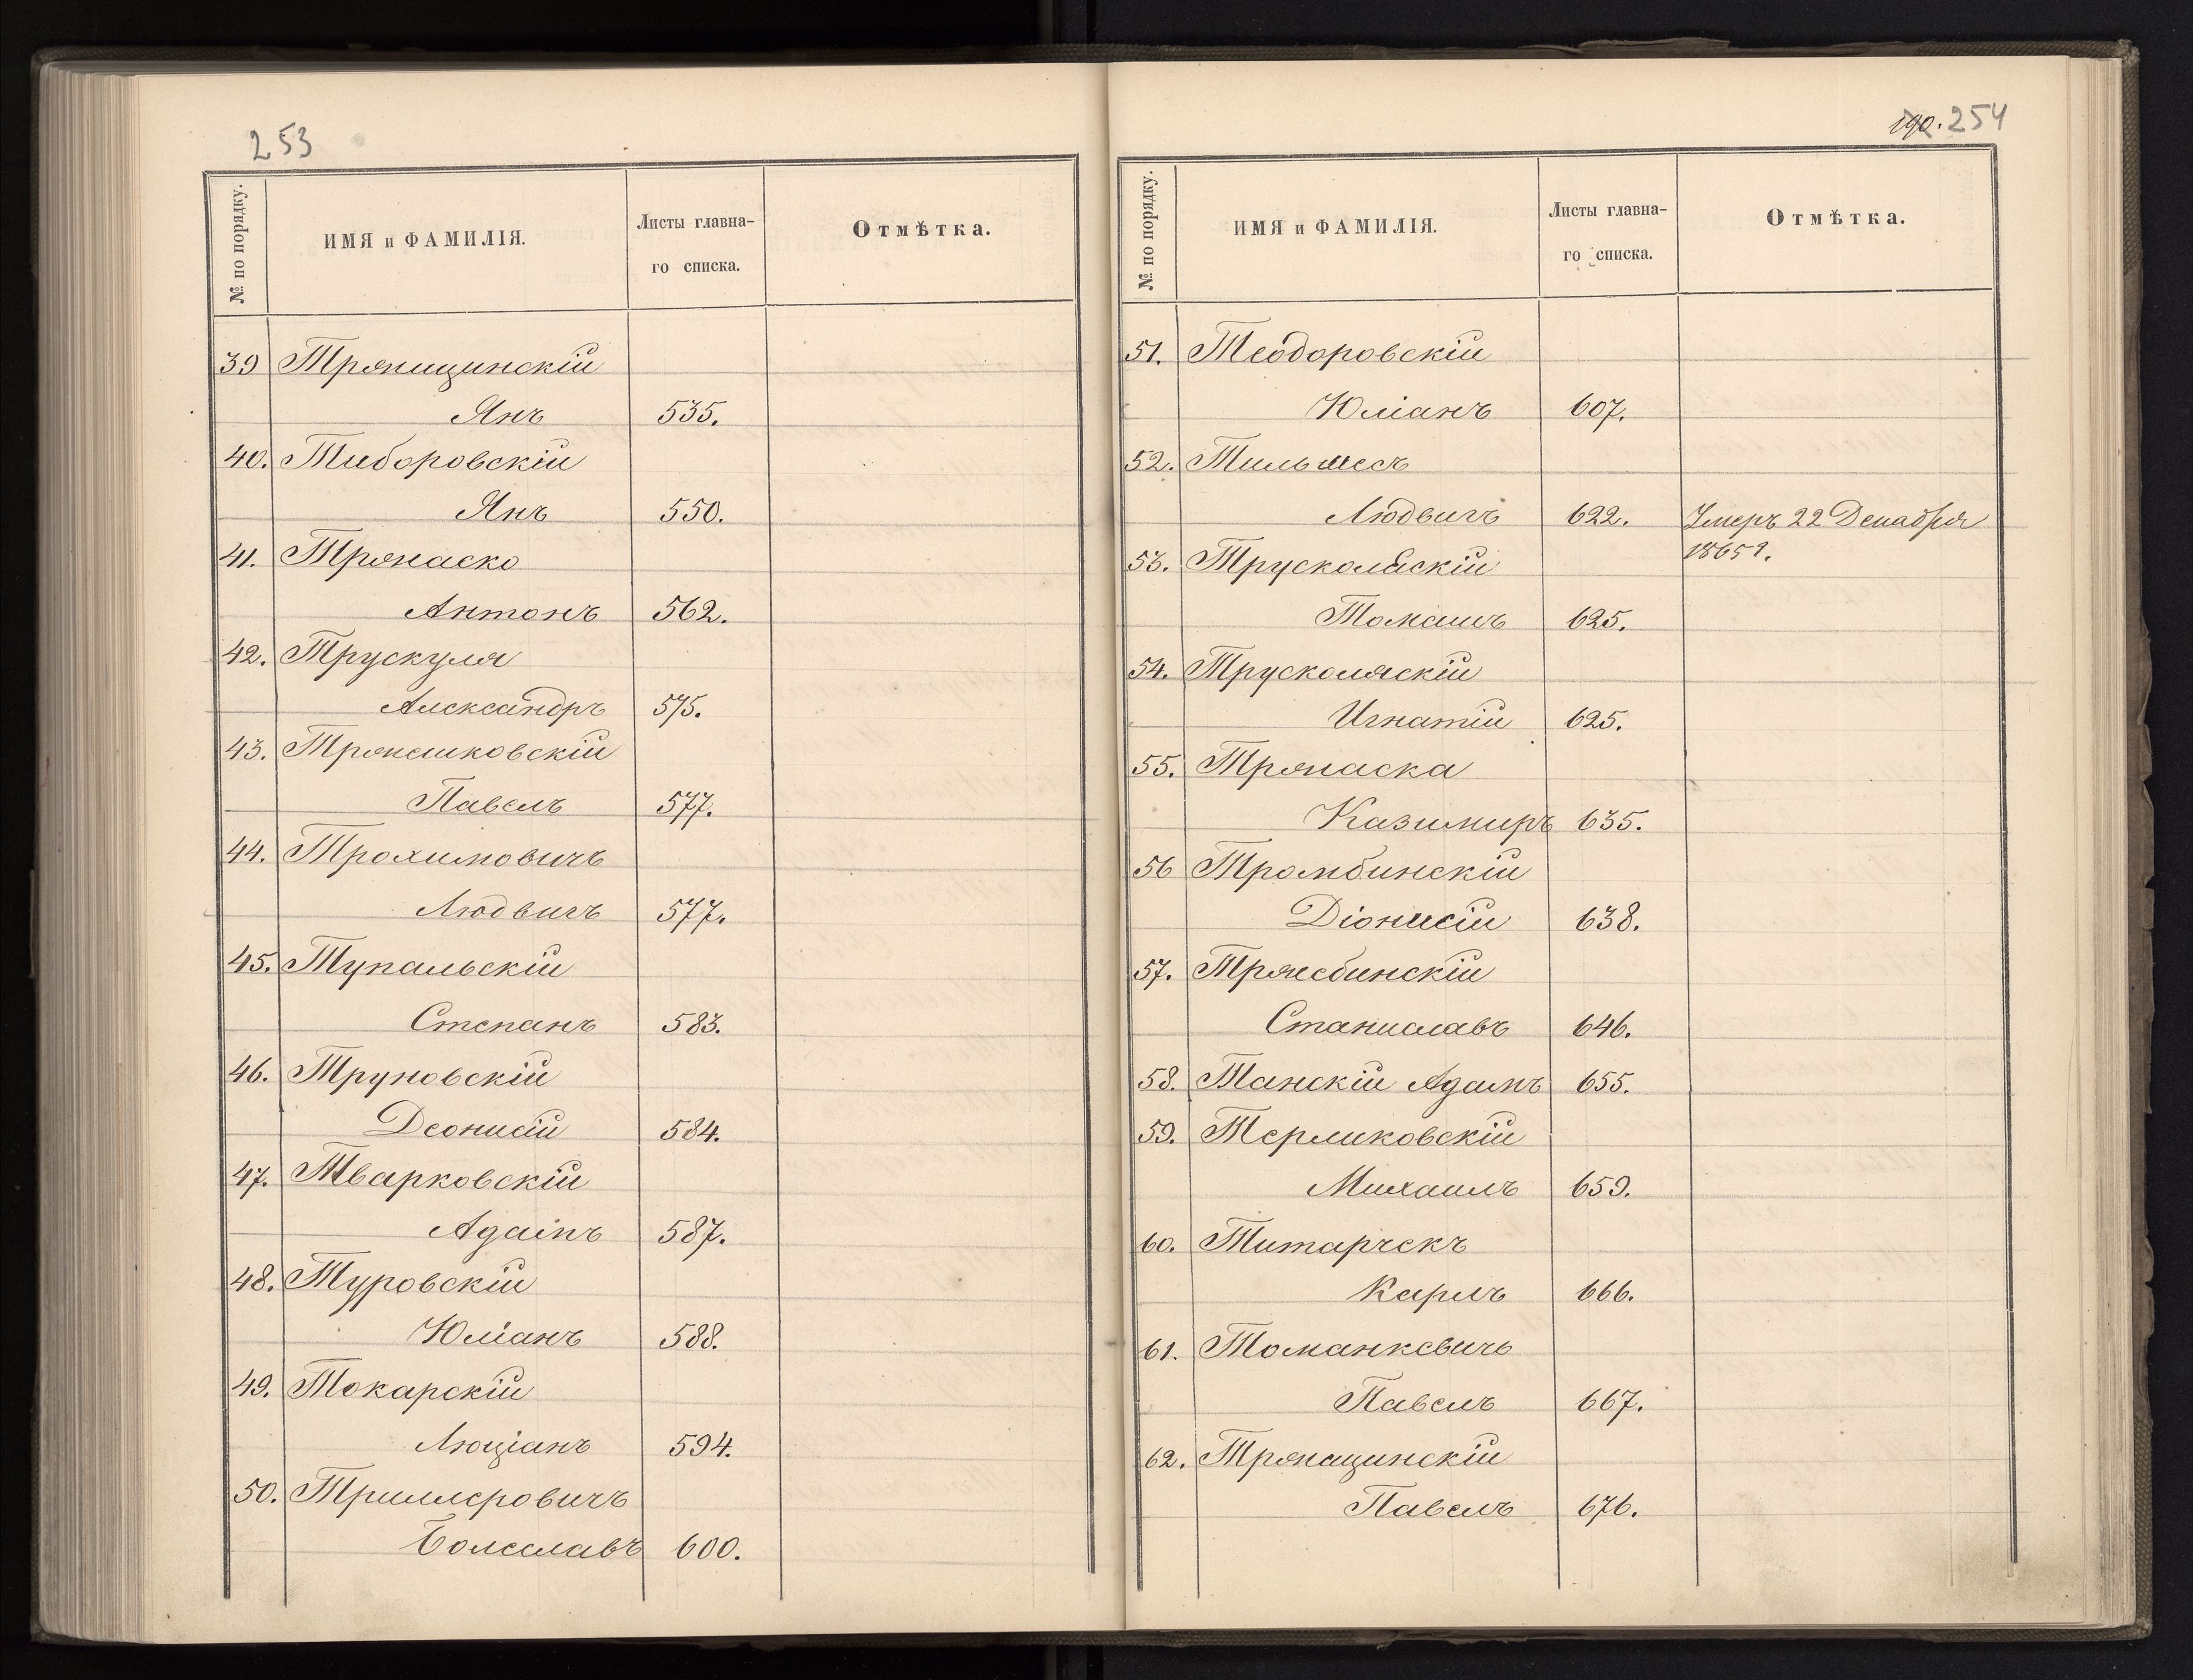 253
№ по порядку.
ИМЯ и ФАМИЛІЯ.
Листы главна-
го списка.
Отмѣтка.
39
Янъ 535.
40. Тиборовскій
Янъ 550.
41. Тржаско
Антонъ 562.
42. Трускуля
Александръ 575.
43.
Павелъ 577.
44. Трохимовичъ
Людвигъ 577.
45. Тупальскій
Степанъ 583.
46. Труновскій
Деонисій 584.
47. Тварковскій
Адамъ 587.
48. Туровскій
Юліанъ 588.
49. Токарскій
Люціанъ 594.
50. Триллеровичъ
Болеславъ 600.
190. 254
№ по порядку.
ИМЯ и ФАМИЛІЯ.
Листы главна-
го списка.
Отмѣтка.
51. Теодоровскій
Юліанъ 607.
52. Тильмесъ
Людвигъ 622. Умеръ 22 Декабря
1865 г.
53. Трусколяскій
Томашъ 625.
54. Трусколяскій
Игнатій 625.
55. Тржаска
Казимиръ 635.
56 Тромбинскій
Діонисій 638.
57.
Станиславъ 646.
58. Танскій Адамъ 655.
59. Терликовскій
Михаилъ 659.
60. Титарчекъ
Карлъ 666.
61. Томанкевичъ
Павелъ 667.
62.
Павелъ 676.